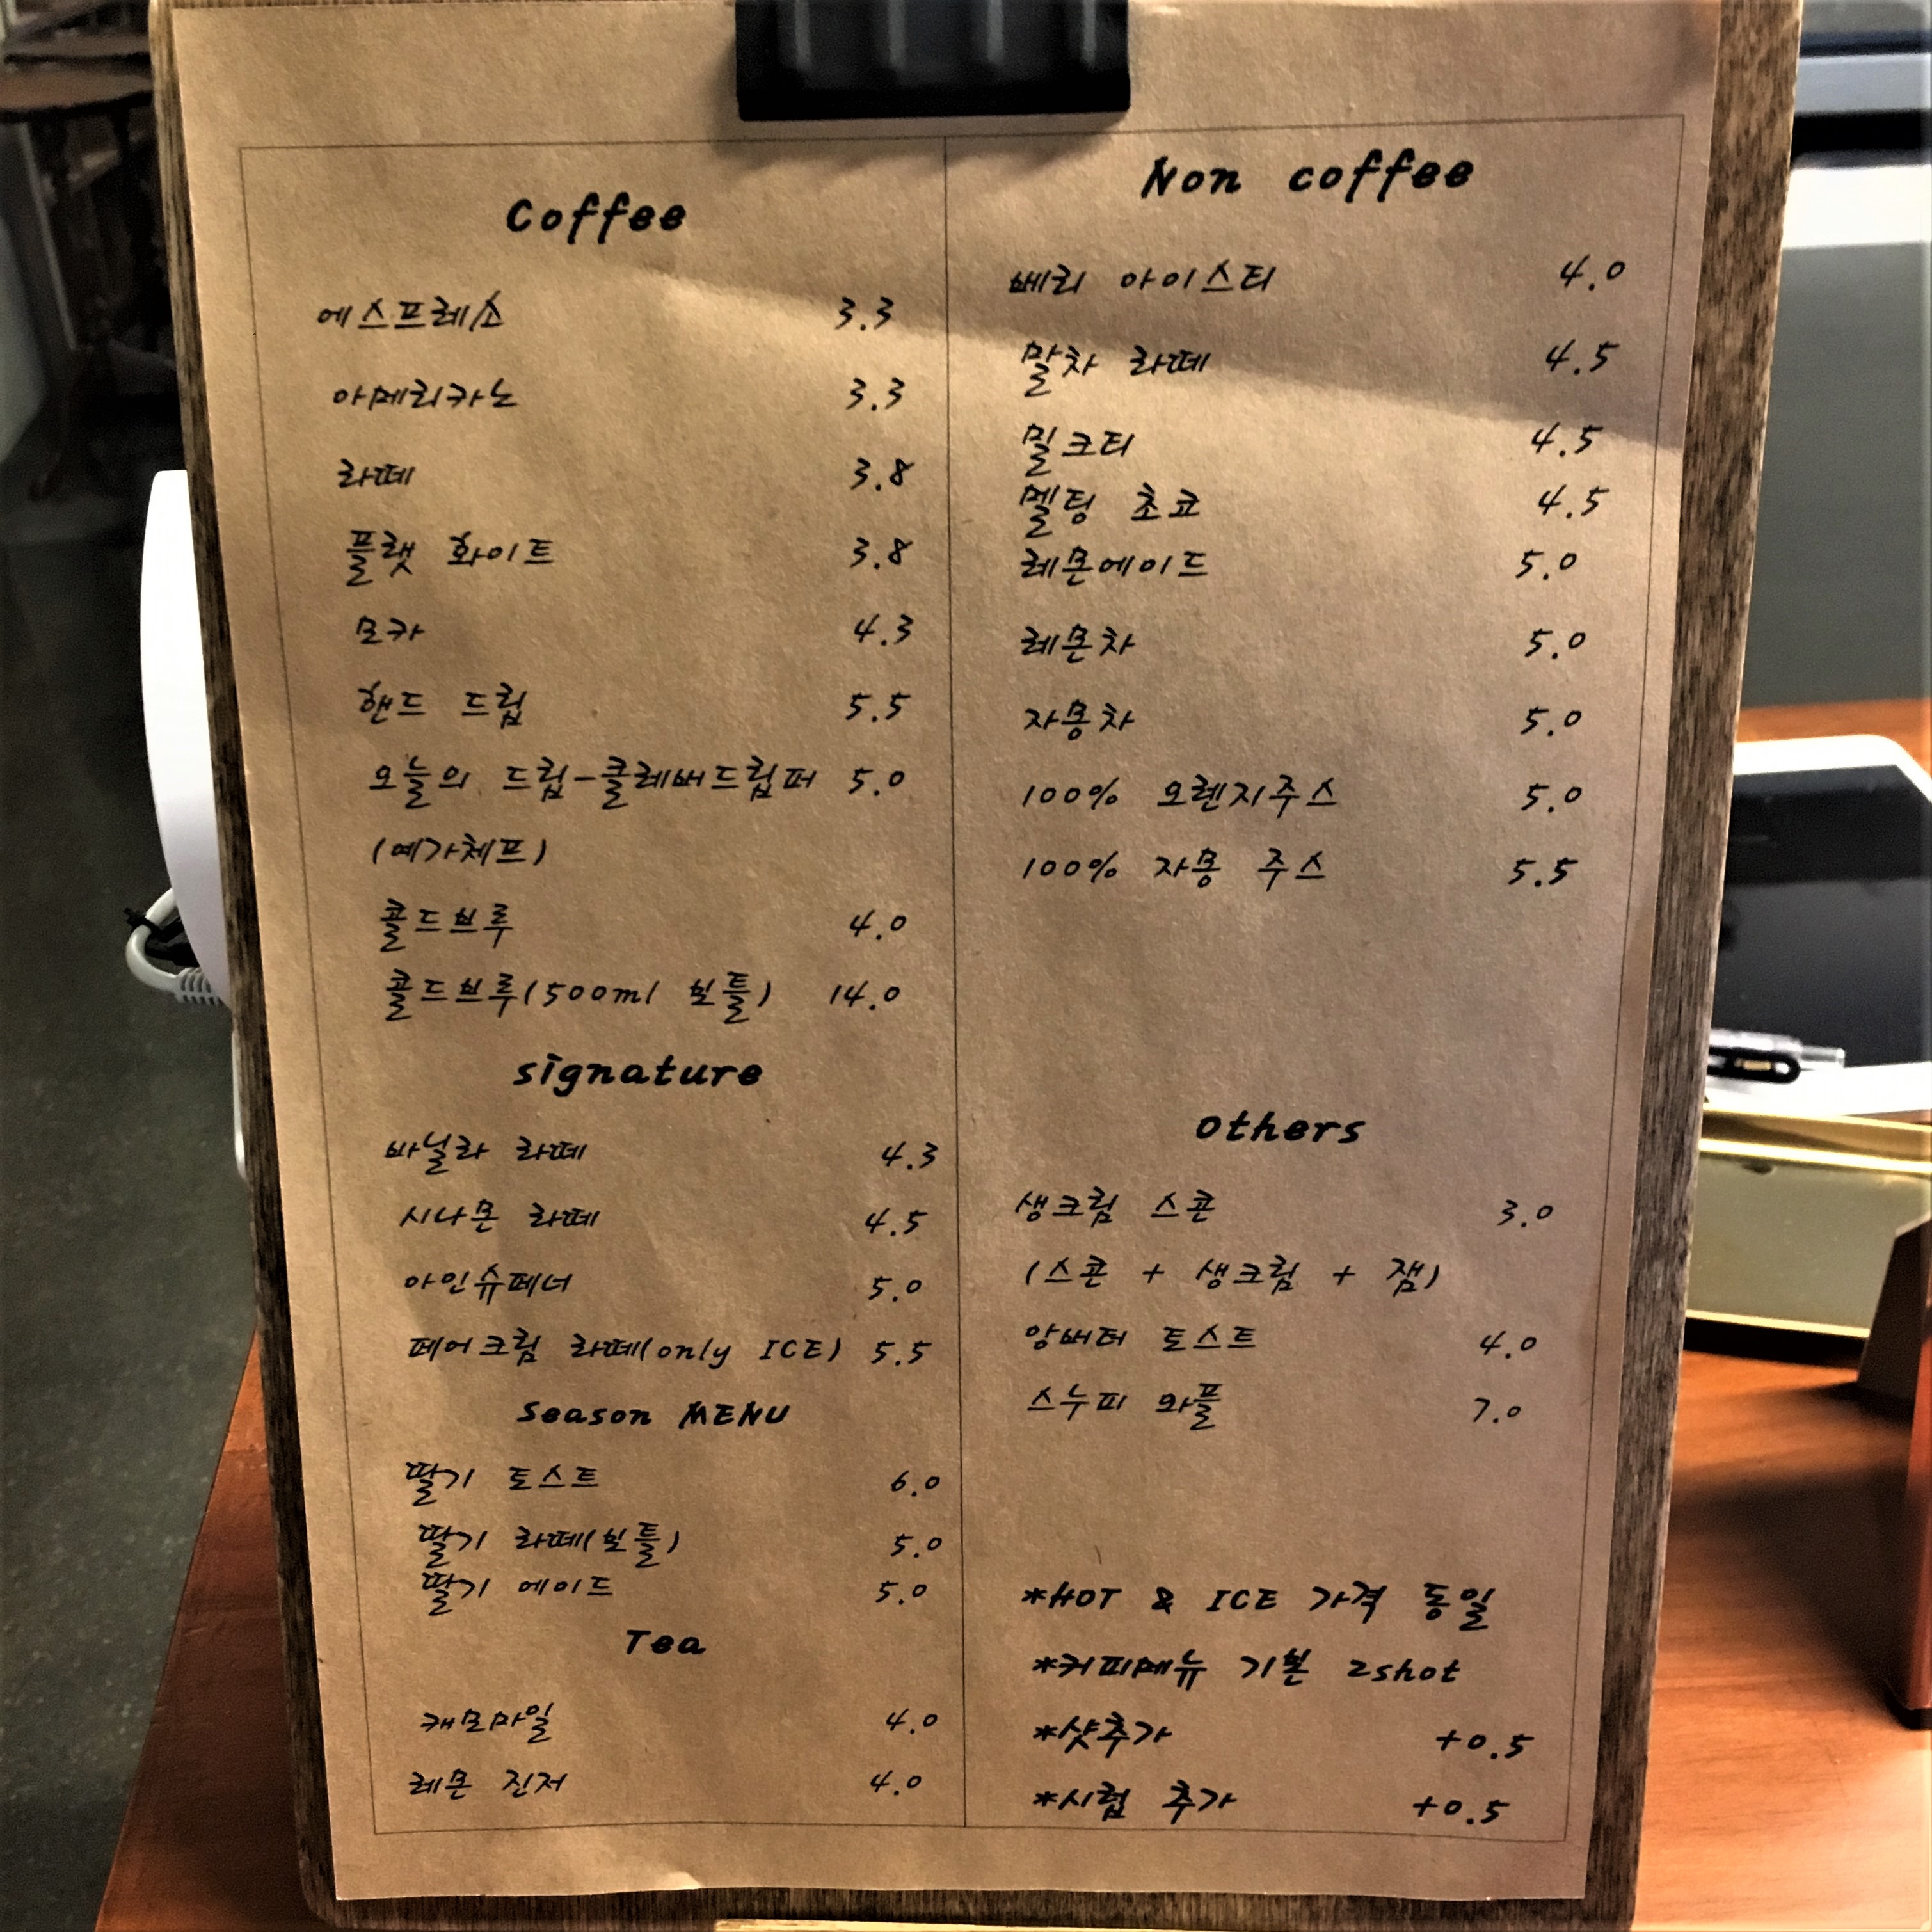 Coffee
에스프레소 3.3
아메리카노 3.3
라떼 3.8
플랫 화이트 3.8
모카 4.3
핸드 드립 5.5
오늘의 드립-클레버드립퍼 5.0
(예가체프)
콜드브루 4.0
콜드브루(500ml 보틀) 14.0
signature
바닐라 라떼 4.3
시나몬 라떼 4.5
아인슈페너 5.0
페어크림 라떼(only ICE) 5.5
Season MENU
딸기 토스트 6.0
딸기 라떼(보틀) 5.0
딸기 에이드 5.0
Tea
캐모마일 4.0
레몬 진저 4.0
Non coffee
베리 아이스티 4.0
말차 라떼 4.5
밀크티 4.5
멜팅 초코 4.5
레몬에이드 5.0
레몬차 5.0
자몽차 5.0
100% 오렌지주스 5.0
100% 자몽 주스 5.5
others
생크림 스콘 3.0
(스콘 + 생크림 + 잼)
앙버터 토스트 4.0
스누피 와플 7.0
*HOT & ICE 가격 동일
*커피메뉴 기본 2shot
*샷추가 +0.5
*시럽 추가 +0.5